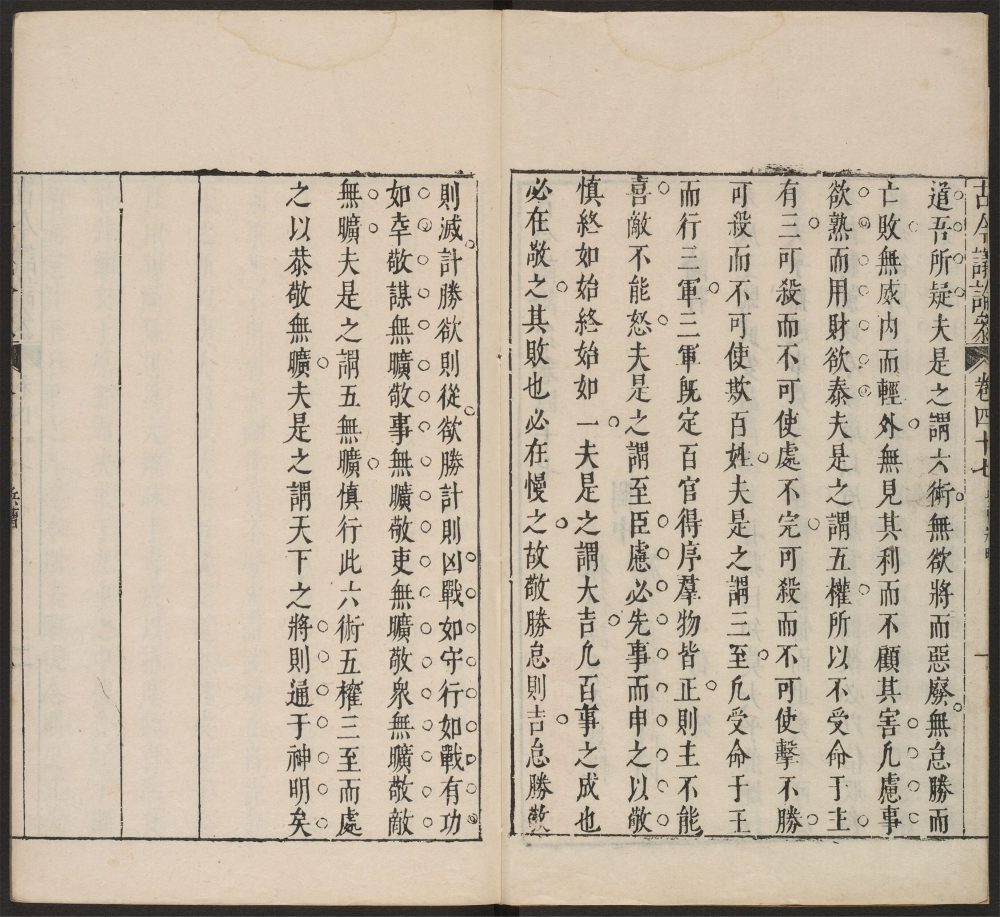 古今議論參
卷四十七
道吾所疑夫是之謂六術無欲將而惡廢無怠勝而
亡敗無威內而輕外無見其利而不顧其害凡慮事
欲熟而用財欲泰夫是之謂五權所以不受命于主
有三可殺而不可使處不完可殺而不可使擊不勝
可殺而不可使欺百姓夫是之謂三至凡受命于王
而行三軍三軍既定百官得序羣物皆正則主不能
喜敵不能怒夫是之謂至臣慮必先事而申之以敬
慎終如始終始如一夫是之謂大吉凡百事之成也
必在敬之其敗也必在慢之故敬勝怠則吉怠勝敬
則滅計勝欲則從欲勝計則凶戰如守行如戰有功
如幸敬謀無曠敬事無曠敬吏無曠敬衆無曠敬敵
無曠夫是之謂五無曠慎行此六術五權三至而處
之以恭敬無曠夫是之謂天下之將則通于神明矣